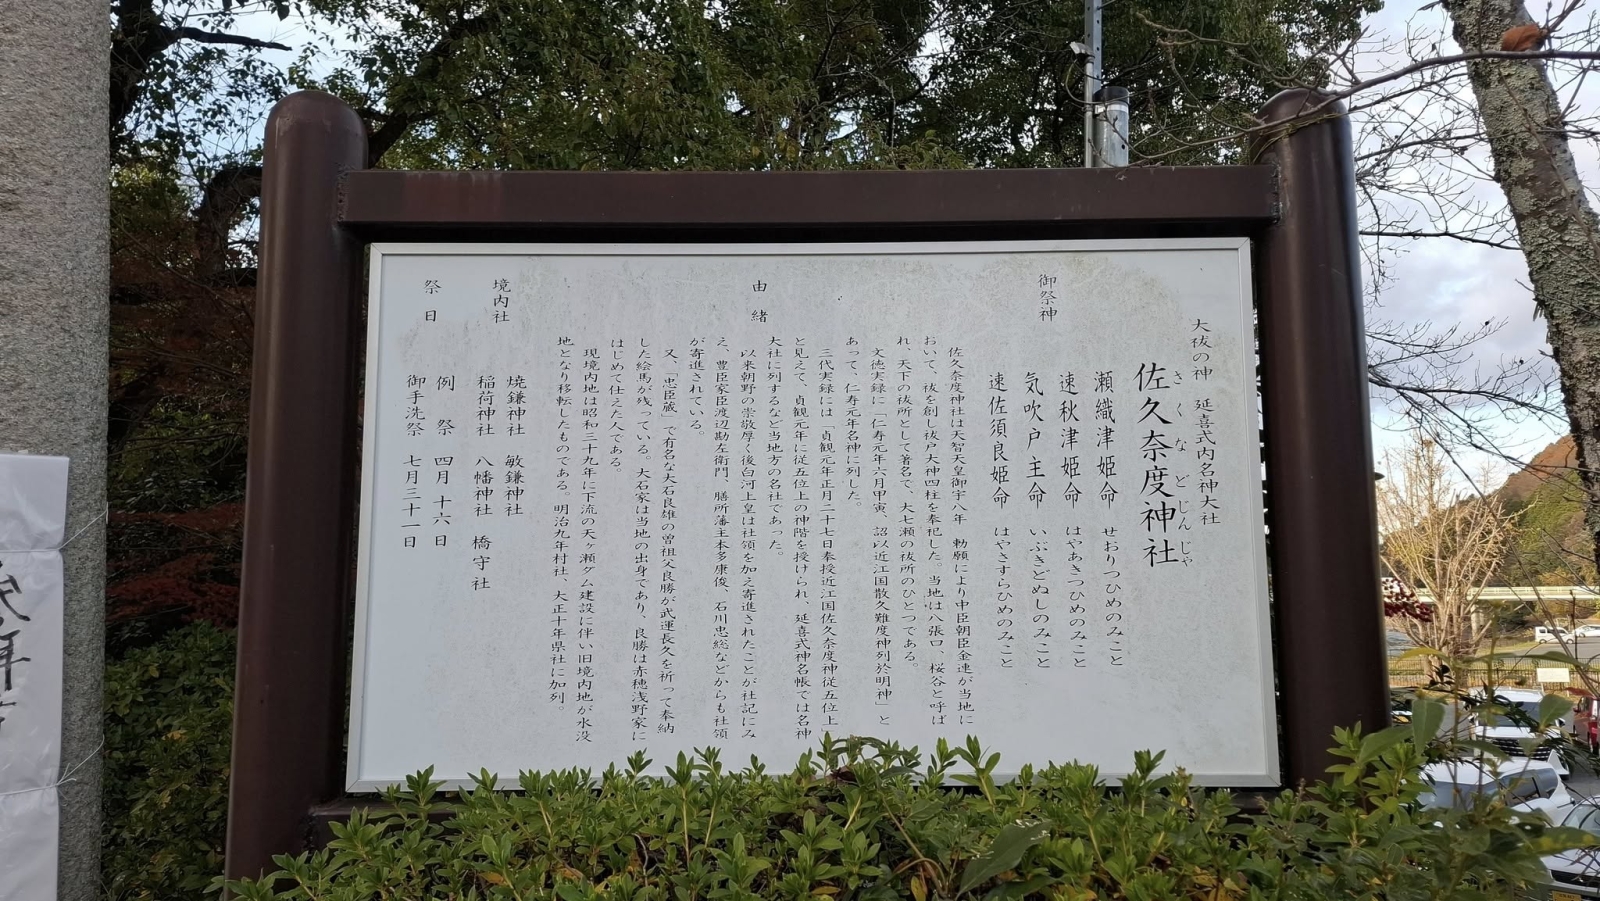 大祓の神 延喜式内名神大社
佐久奈度神社
さくなどじんじゃ
御祭神
瀬織津姫命 せおりつひめのみこと
速秋津姫命 はやあきつひめのみこと
気吹戸主命 いぶきどぬしのみこと
速佐須良姫命 はやさすらひめのみこと
由緒
佐久奈度神社は天智天皇御宇八年 勅願により中臣朝臣金連が当地に
おいて、祓を創し祓戸大神四柱を奉祀した。当地は八張口、桜谷と呼ば
れ、天下の祓所として著名で、大七瀬の祓所のひとつである。
文徳実録に「仁寿元年六月甲寅、詔以近江国散久難度神列於明神」と
あって、仁寿元年名神に列した。
三代実録には「貞観元年正月二十七日奉授近江国佐久奈度神従五位上」
と見えて、貞観元年に従五位上の神階を授けられ、延喜式神名帳では名神
大社に列するなど当地方の名社であった。
以来朝野の崇敬厚く後白河上皇は社領を加え寄進されたことが社記にみ
え、豊臣家臣渡辺勘左衛門、膳所藩主本多康俊、石川忠総などからも社領
が寄進されている。
又、「忠臣蔵」で有名な大石良雄の曽祖父良勝が武運長久を祈って奉納
した絵馬が残っている。大石家は当地の出身であり、良勝は赤穂浅野家に
はじめて仕えた人である。
現境内地は昭和三十九年に下流の天ヶ瀬ダム建設に伴い旧境内地が水没
地となり移転したものである。明治九年村社、大正十年県社に加列。
境内社
焼鎌神社 敏鎌神社
稲荷神社 八幡神社 橋守社
祭日
例祭 四月十六日
御手洗祭 七月三十一日